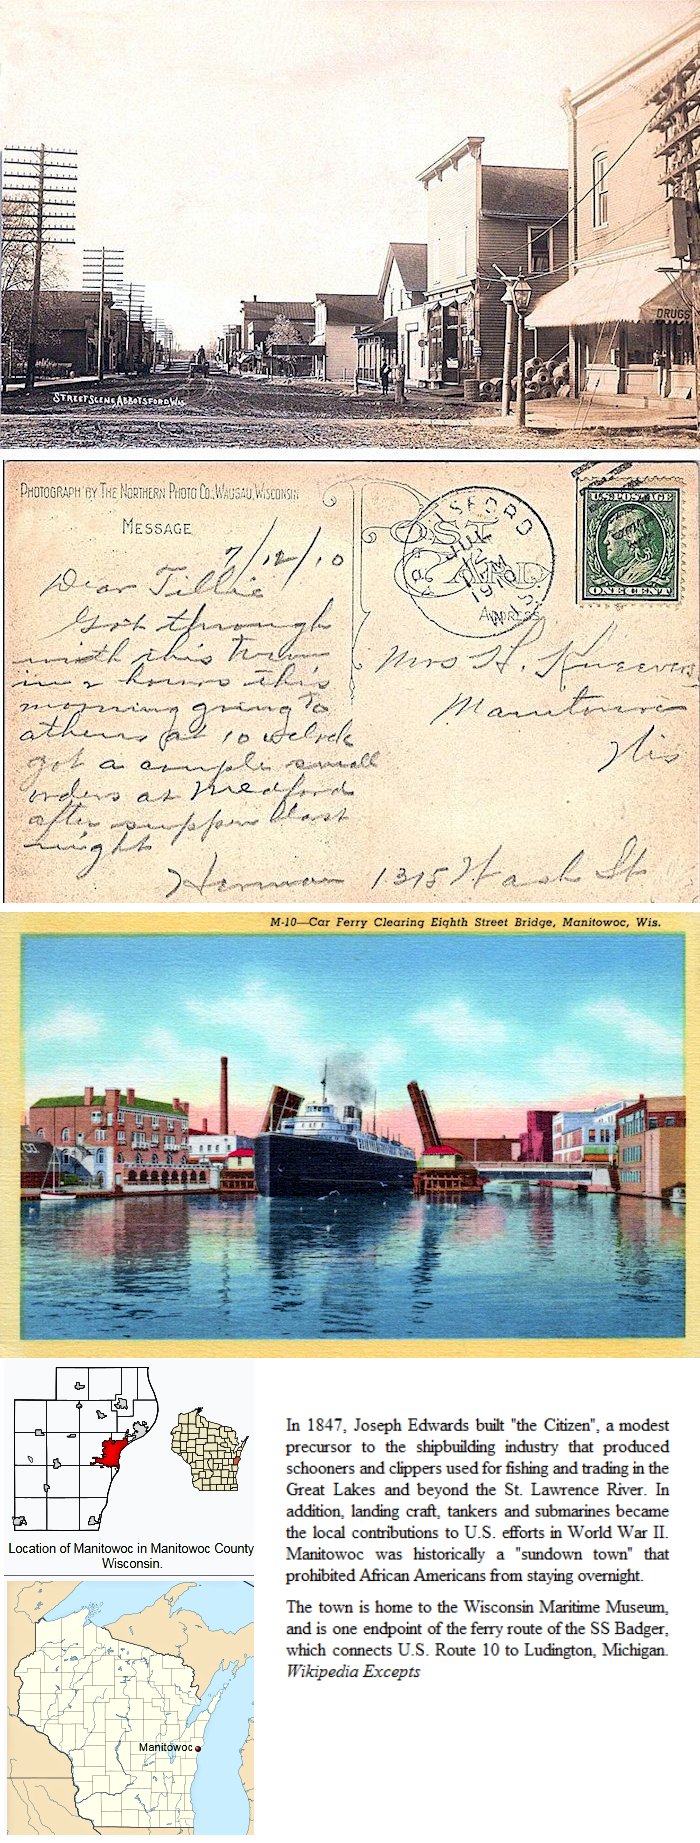 DRUGS
STREET SCENE ABBOTSFORD WIS.
PHOTOGRAPH BY THE NORTHERN PHOTO CO., WAUSAU, WISCONSIN
MESSAGE
7/12/10
Dear Tillie
Got through
with this town
in 2 hours this
morning going to
athens at 10 oclock
got a couple small
orders at Medford
after supper last
night
Herman 1315 Wash St
POST
CARD
ADDRESS
TSFORD
JUL
12
M
1910
WIS.
U.S. POSTAGE
ONE CENT
Mrs H.
Manitowoc
Wis
M-10—Car Ferry Clearing Eighth Street Bridge, Manitowoc, Wis.
Location of Manitowoc in Manitowoc County
Wisconsin.
Manitowoc
In 1847, Joseph Edwards built "the Citizen", a modest
precursor to the shipbuilding industry that produced
schooners and clippers used for fishing and trading in the
Great Lakes and beyond the St. Lawrence River. In
addition, landing craft, tankers and submarines became
the local contributions to U.S. efforts in World War II.
Manitowoc was historically a "sundown town" that
prohibited African Americans from staying overnight.
The town is home to the Wisconsin Maritime Museum,
and is one endpoint of the ferry route of the SS Badger,
which connects U.S. Route 10 to Ludington, Michigan.
Wikipedia Excepts